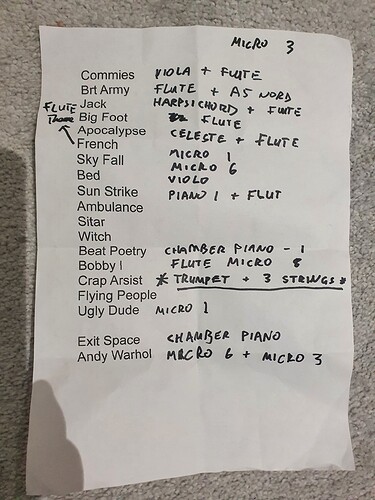 MICRO 3
Commies VIOLA + FLUTE
Brt Army FLUTE + AS NORD
Jack HARPSICHORD + FLUTE
FLUTE
Big Foot FLUTE
Apocalypse
French CELESTE + FLUTE
Sky Fall MICRO 1
Bed MICRO 6
Sun Strike VIOLO
Ambulance PIANO 1 + FLUT
Sitar
Witch
Beat Poetry CHAMBER PIANO - 1
Bobby I FLUTE MICRO 8
Crap Arsist * TRUMPET + 3 STRINGS *
Flying People
Ugly Dude MICRO 1
Exit Space CHAMBER PIANO
Andy Warhol MICRO 6 + MICRO 3